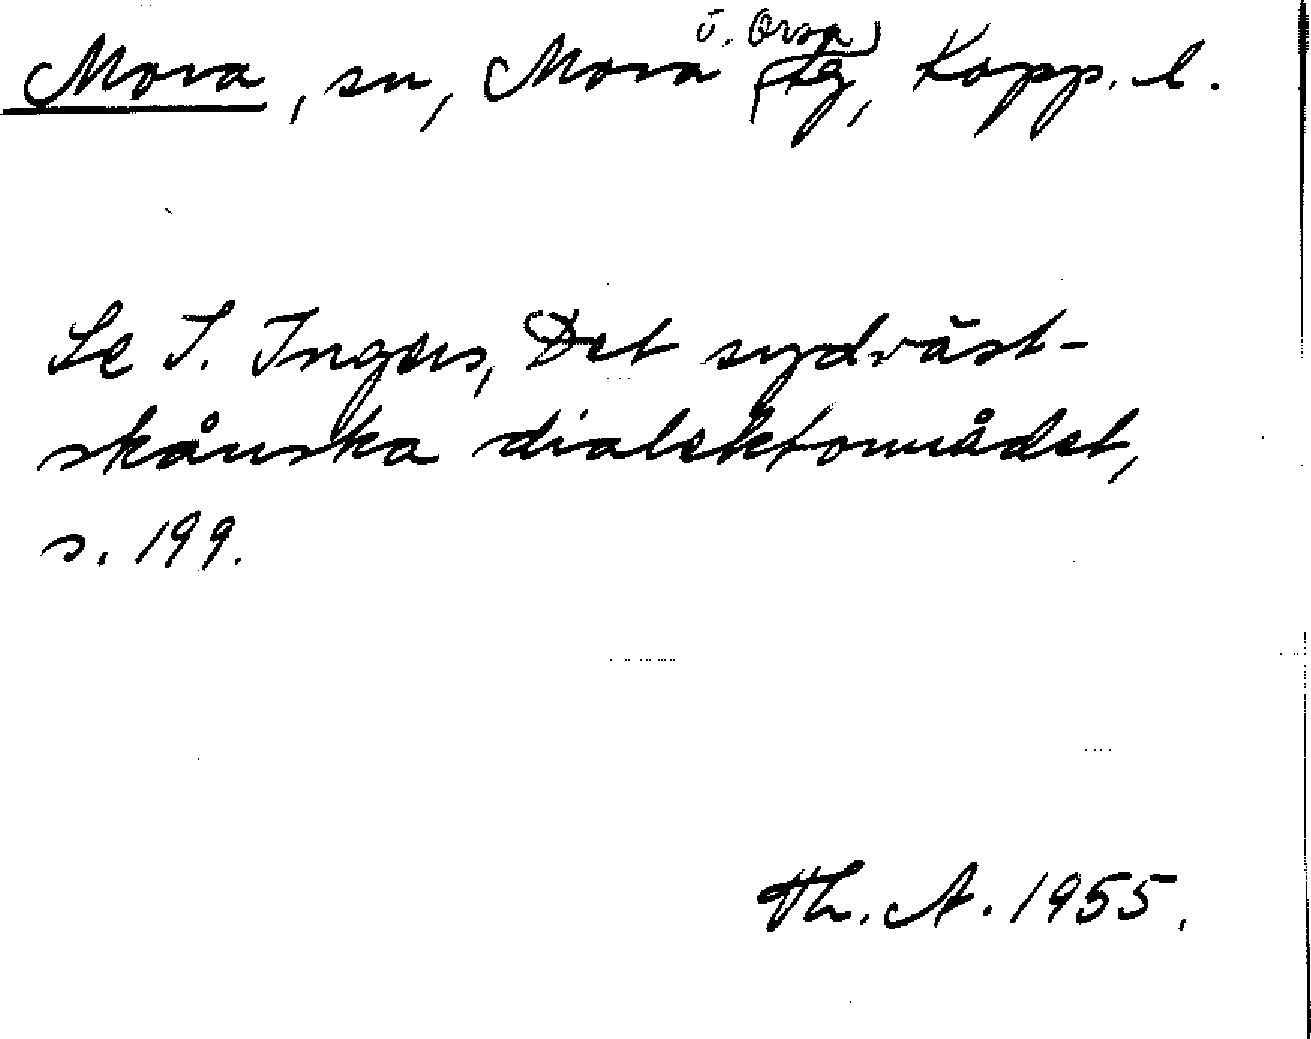 Mora, sn, Mora o. Orsa tg, Kopp. l.
Se I. Ingers, Det sydväst-
skånska dialektområdet,
s. 199.
Th. A. 1955.